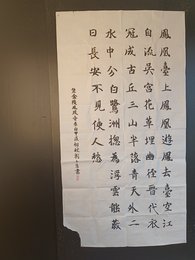 鳳凰臺上鳳凰遊鳳去臺空江
自流吳宮花草埋幽徑晉代衣
冠成古丘三山半落青天外二
水中分白鷺洲總為浮雲能蔽
日長安不見使人愁
登金陵鳳凰臺 書